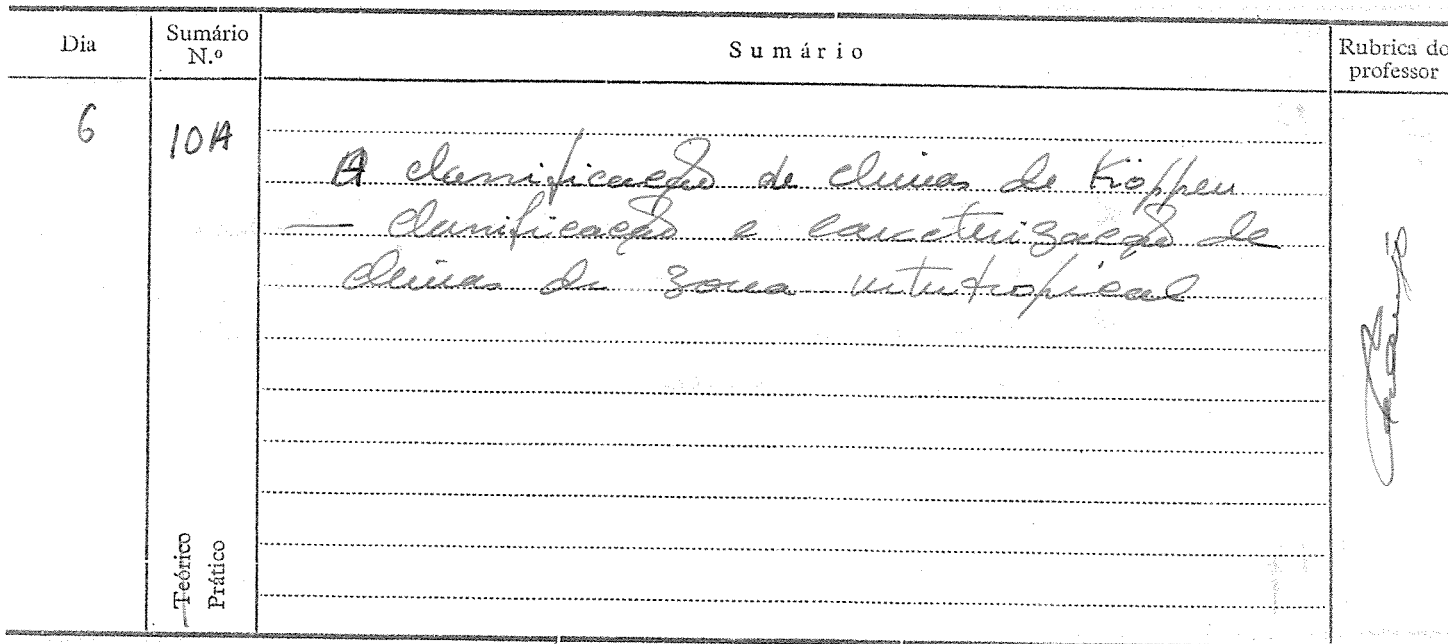 Dia
Sumário
N.º
Sumário
Rubrica do
professor
6
10A
A classificação de climas de Köppen
— Classificação e caracterização de
climas da zona intertropical
Teórico
Prático